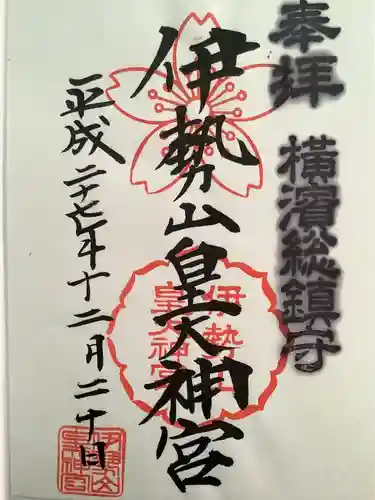 奉拝
横濱総鎮守
伊勢山皇大神宮
伊勢山
皇大神宮
平成二十七年十二月二十日
伊勢山
皇神宮